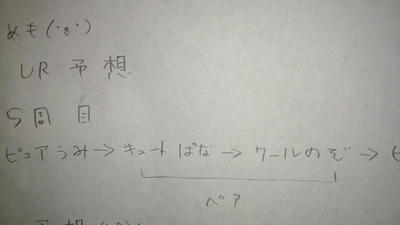 めも(·8·)
UR 予想
5周目
ピュアうみ→キュートぱな→クールのぞ→ピ
ペア
予想